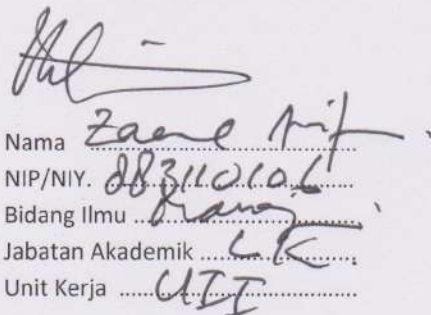 Nama Zaenal Arif
NIP/NIY. 883110106
Bidang Ilmu ........
Jabatan Akademik LK
Unit Kerja ........ UII